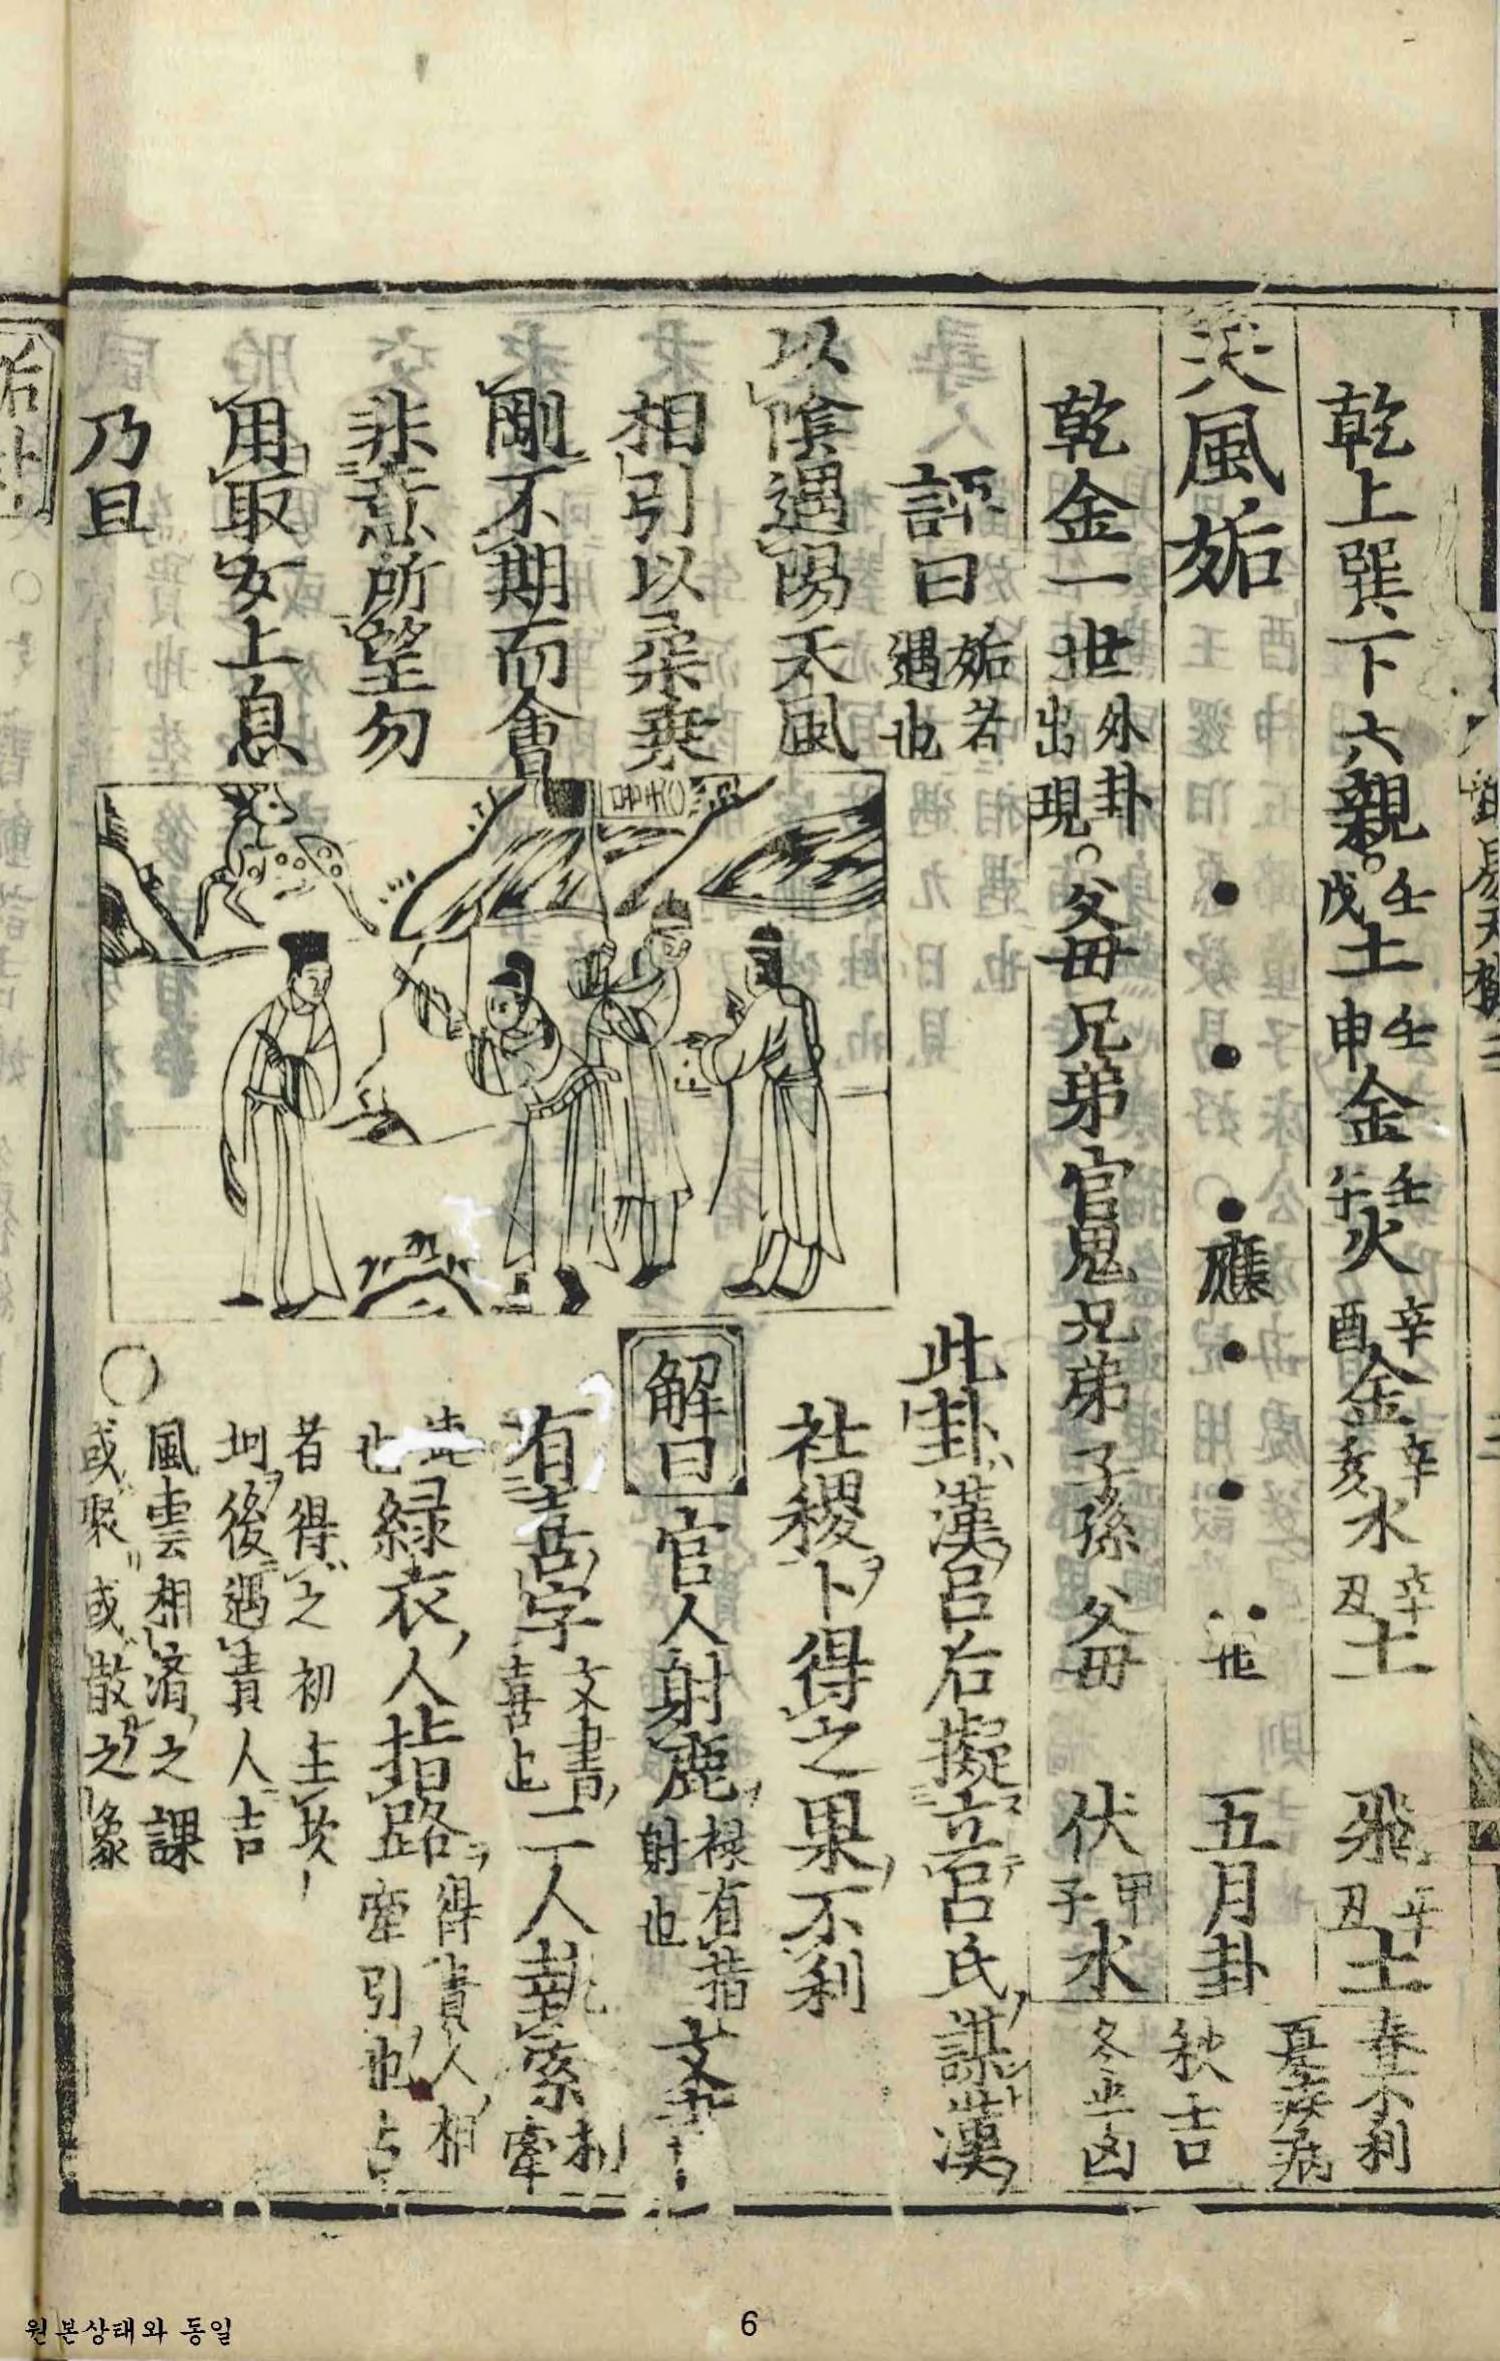 乾上巽下六親○壬戌土壬申金壬午火辛酉金辛亥水辛丑土 飛辛丑土
春不利
夏疾病
天風姤 應 世 五月卦
秋吉
冬凶
乾金一世外卦出現○父母兄弟官鬼兄弟子孫父母 伏甲子水
評曰姤者遇也
以陰遇陽天風
相引以柔乗
剛不期而會
非意所望勿
用取女上息
乃且
此卦漢呂后擬立呂氏謀漢
社稷卜得之果不利
解曰官人射鹿禄有指射也文書
有喜字文書喜上二人執索相牽
也緑衣人指路得貴人相牽引也占
者得之初主坎
坷後遇貴人吉
○風雲相濟之課
或聚或散之象
원본상태와 동일
6